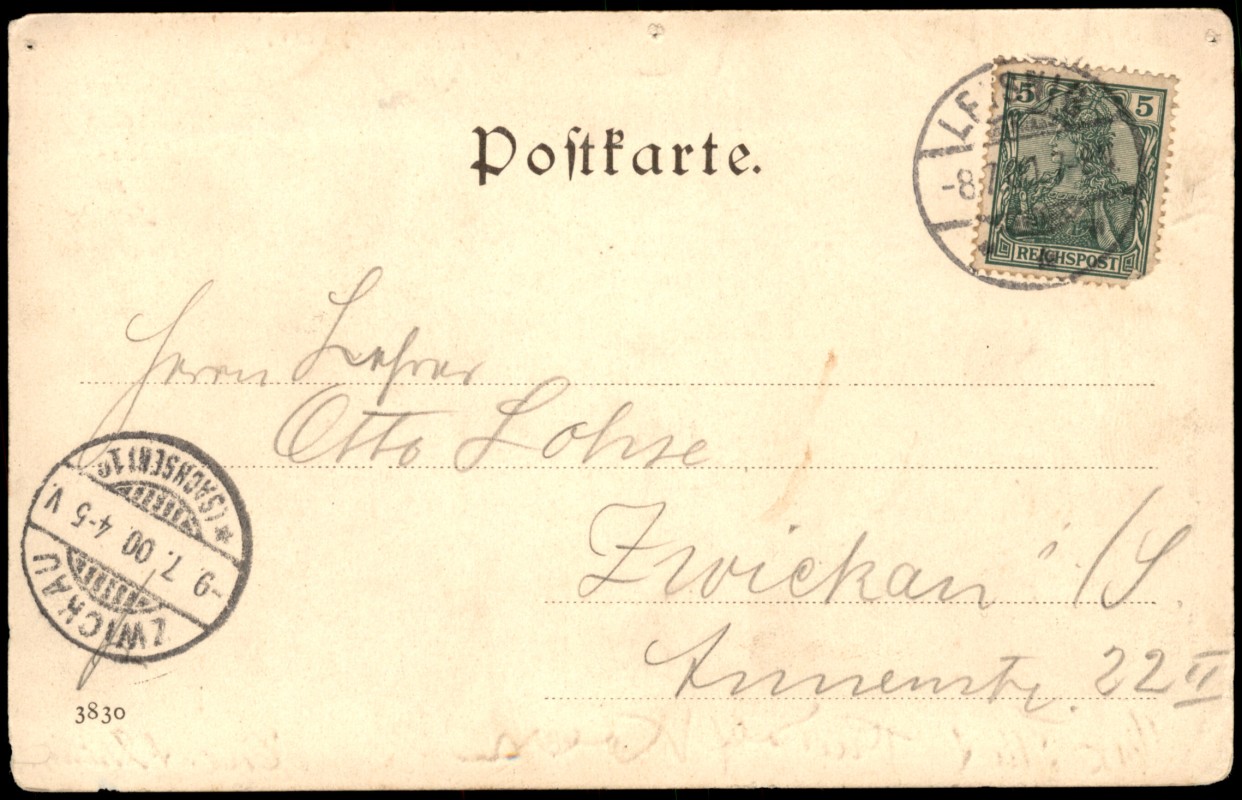 Postkarte.
5 5
REICHSPOST
LEISNIG
-8.7.
Herrn Lehrer
Otto Lohse
Zwickau i/S.
Annenstr. 22 II
ZWICKAU
-9. 7. 00. 4-5 V.
*(SACHSEN) 1c
3830